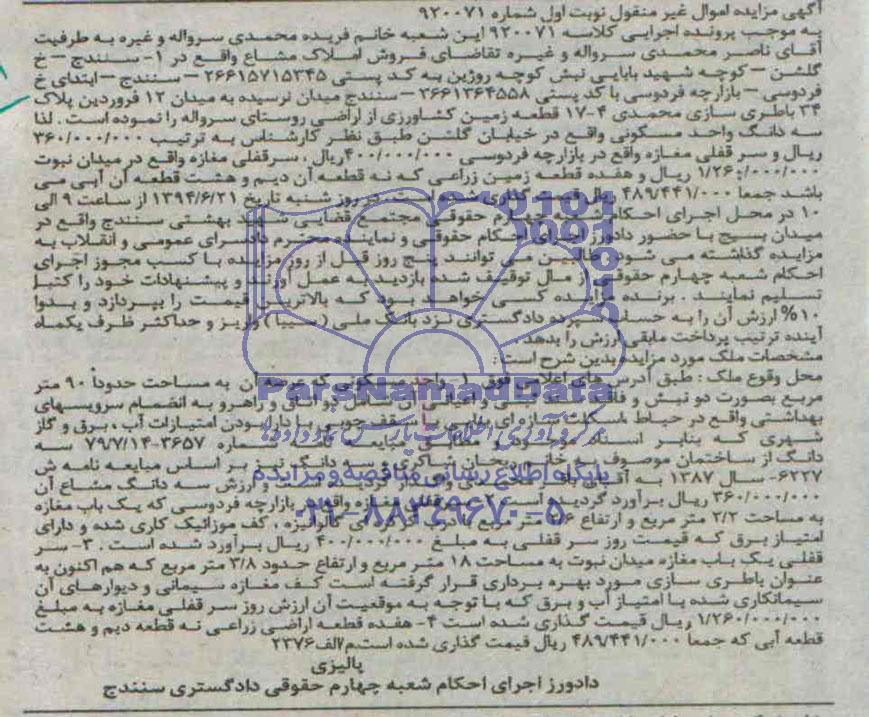 آگهی مزایده اموال غیر منقول نوبت اول شماره ۹۲۰۰۷۱
به موجب پرونده اجرایی کلاسه ۹۲۰۰۷۱ این شعبه خانم فریده محمدی سرواله و غیره به طرفیت
آقای ناصر محمدی سرواله و غیره تقاضای فروش املاک مشاع واقع در ۱- سنندج – خ
گلشن – کوچه شهید بابایی نبش کوچه روژین به کد پستی ۲۶۶۱۵۷۱۵۳۴۵ – سنندج – ابتدای خ
فردوسی – بازارچه فردوسی با کد پستی ۳۶۶۱۳۶۴۵۵۸ – سنندج میدان نرسیده به میدان ۱۲ فروردین پلاک
۳۴ باطری سازی محمدی ۴-۱۷ قطعه زمین کشاورزی از اراضی روستای سرواله را نموده است . لذا
سه دانگ واحد مسکونی واقع در خیابان گلشن طبق نظر کارشناس به ترتیب ۳۶۰/۰۰۰/۰۰۰
ریال و سر قفلی مغازه واقع در بازارچه فردوسی ۴۰۰/۰۰۰/۰۰۰ریال ، سرقفلی مغازه واقع در میدان نبوت
۱/۲۶۰/۰۰۰/۰۰۰ ریال و هفده قطعه زمین زراعی که نه قطعه آن دیم و هشت قطعه آن آبی می
باشد جمعا ۴۸۹/۴۴۱/۰۰۰ ریال قیمت گذاری شده است . در روز شنبه تاریخ ۱۳۹۴/۶/۲۱ از ساعت ۹ الی
۱۰ در محل اجرای احکام شعبه چهارم حقوقی مجتمع قضایی شهید بهشتی سنندج واقع در
میدان بسیج با حضور دادورز اجرای احکام حقوقی و نماینده محترم دادسرای عمومی و انقلاب به
مزایده گذاشته می شود طالبین می توانند پنج روز قبل از روز مزایده با کسب مجوز اجرای
احکام شعبه چهارم حقوقی از مال توقیف شده بازدید به عمل آورند و پیشنهادات خود را کتبا
تسلیم نمایند . برنده مزایده کسی خواهد بود که بالاترین قیمت را بپردازد و بدوا
۱۰% ارزش آن را به حساب سپرده دادگستری نزد بانک ملی ( سیبا ) واریز و حداکثر ظرف یکماه
آینده ترتیب پرداخت مابقی ارزش را بدهد .
مشخصات ملک مورد مزایده بدین شرح است :
محل وقوع ملک : طبق آدرس های اعلامی فوق ۱- واحد مسکونی که عرصه آن به مساحت حدوداً ۹۰ متر
مربع بصورت دو نبش و فاقد و اعیانی آن شامل دو اتاق و راهرو به انضمام سرویسهای
بهداشتی واقع در حیاط سازه ای بنایی با سقف چوبی با دارا بودن امتیازات آب ، برق و گاز
شهری که بنابر اسناد شماره ۳۶۵۷-۷۹/۷/۱۴ سه
دانگ از ساختمان موصوف به خانم شاکری و سه دانگ نیز بر اساس مبایعه نامه ش
۶۲۲۷- سال ۱۳۸۷ به آقای و ارزش سه دانگ مشاع آن
۳۶۰/۰۰۰/۰۰۰ ریال برآورد گردیده است مغازه واقع در بازارچه فردوسی که یک باب مغازه
به مساحت ۲/۲ متر مربع و ارتفاع متر مربع گالوانیزه ، کف موزائیک کاری شده و دارای
امتیاز برق که قیمت روز سر قفلی به مبلغ ۴۰۰/۰۰۰/۰۰۰ ریال برآورد شده است . ۳- سر
قفلی یک باب مغازه میدان نبوت به مساحت ۱۸ متر مربع و ارتفاع حدود ۳/۸ متر مربع که هم اکنون به
عنوان باطری سازی مورد بهره برداری قرار گرفته است کف مغازه سیمانی و دیوارهای آن
سیمانکاری شده با امتیاز آب و برق که با توجه به موقعیت آن ارزش روز سر قفلی مغازه به مبلغ
۱/۲۶۰/۰۰۰/۰۰۰ ریال قیمت گذاری شده است ۴- هفده قطعه اراضی زراعی نه قطعه دیم و هشت
قطعه آبی که جمعا ۴۸۹/۴۴۱/۰۰۰ ریال قیمت گذاری شده است.م/الف۲۳۷۶
پالیزی
دادورز اجرای احکام شعبه چهارم حقوقی دادگستری سنندج
ParsNamadData
پایگاه اطلاع رسانی مناقصه و مزایده
۰۲۱-۸۸۳۴۹۶۷۰-۵